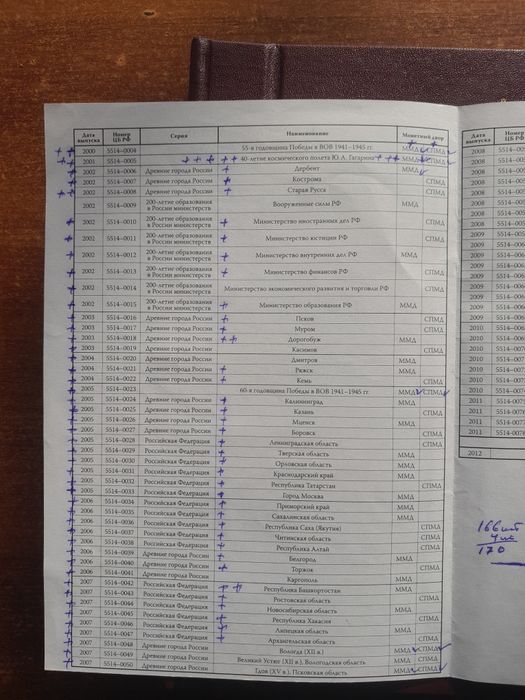 Дата выпуска Номер ЦБ РФ Серия Наименование Монетный двор
2000 5514-0004 55-я годовщина Победы в ВОВ 1941–1945 гг. ММД СПМД
2001 5514-0005 40-летие космического полета Ю.А. Гагарина ММД СПМД
2002 5514-0006 Древние города России Дербент ММД
2002 5514-0007 Древние города России Кострома СПМД
2002 5514-0008 Древние города России Старая Русса СПМД
2002 5514-0009 200-летие образования в России министерств Вооруженные силы РФ ММД
2002 5514-0010 200-летие образования в России министерств Министерство иностранных дел РФ СПМД
2002 5514-0011 200-летие образования в России министерств Министерство юстиции РФ СПМД
2002 5514-0012 200-летие образования в России министерств Министерство внутренних дел РФ ММД
2002 5514-0013 200-летие образования в России министерств Министерство финансов РФ СПМД
2002 5514-0014 200-летие образования в России министерств Министерство экономического развития и торговли РФ СПМД
2002 5514-0015 200-летие образования в России министерств Министерство образования РФ ММД
2003 5514-0016 Древние города России Псков СПМД
2003 5514-0017 Древние города России Муром СПМД
2003 5514-0018 Древние города России Дорогобуж ММД
2003 5514-0019 Древние города России Касимов СПМД
2004 5514-0020 Древние города России Дмитров ММД
2004 5514-0021 Древние города России Ряжск ММД
2004 5514-0022 Древние города России Кемь СПМД
2005 5514-0023 60-я годовщина Победы в ВОВ 1941–1945 гг. ММД СПМД
2005 5514-0024 Древние города России Калининград ММД
2005 5514-0025 Древние города России Казань СПМД
2005 5514-0026 Древние города России Мценск ММД
2005 5514-0027 Древние города России Боровск СПМД
2005 5514-0028 Российская Федерация Ленинградская область СПМД
2005 5514-0029 Российская Федерация Тверская область ММД
2005 5514-0030 Российская Федерация Орловская область ММД
2005 5514-0031 Российская Федерация Краснодарский край ММД
2005 5514-0032 Российская Федерация Республика Татарстан СПМД
2005 5514-0033 Российская Федерация Город Москва ММД
2006 5514-0034 Российская Федерация Приморский край ММД
2006 5514-0035 Российская Федерация Сахалинская область ММД
2006 5514-0036 Российская Федерация Республика Саха (Якутия) СПМД
2006 5514-0037 Российская Федерация Читинская область СПМД
2006 5514-0038 Российская Федерация Республика Алтай СПМД
2006 5514-0039 Древние города России Белгород ММД
2006 5514-0040 Древние города России Торжок СПМД
2006 5514-0041 Древние города России Каргополь ММД
2007 5514-0042 Российская Федерация Республика Башкортостан ММД
2007 5514-0043 Российская Федерация Ростовская область СПМД
2007 5514-0044 Российская Федерация Новосибирская область ММД
2007 5514-0045 Российская Федерация Республика Хакасия СПМД
2007 5514-0046 Российская Федерация Липецкая область ММД
2007 5514-0047 Российская Федерация Архангельская область СПМД
2007 5514-0048 Древние города России Вологда (XII в.) ММД СПМД
2007 5514-0049 Древние города России Великий Устюг (XII в.), Вологодская область ММД СПМД
2007 5514-0050 Древние города России Гдов (XV в.), Псковская область ММД СПМД
Дата выпуска
2008
2008
2008
2008
2008
2008
2008
2008
2009
2009
2009
2009
2009
2009
2009
2009
2010
2010
2010
2010
2010
2011
2011
2011
2012
166
170